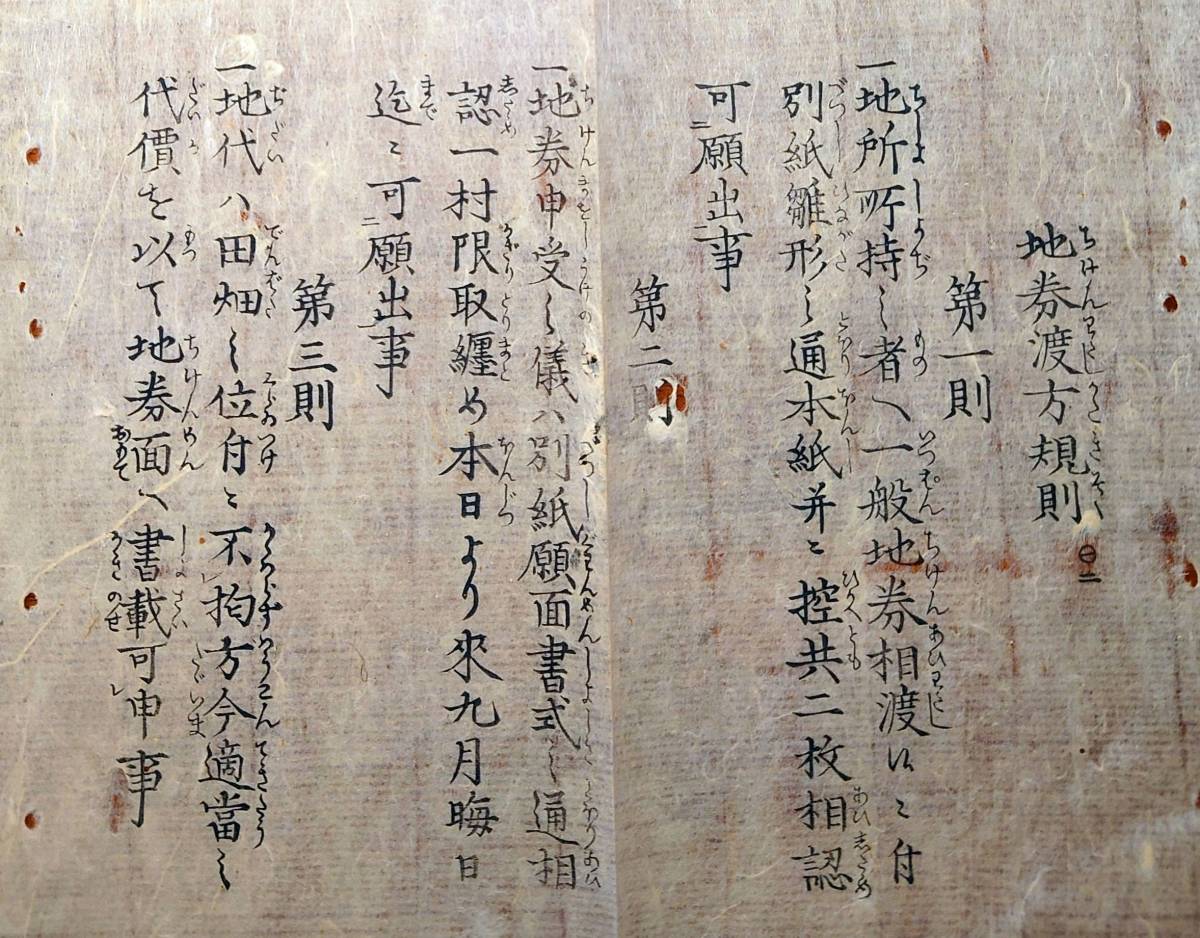 地券渡方規則
第一則
一地所所持之者へ一般地券相渡候ニ付
別紙雛形之通本紙并ニ控共二枚相認
可願出事
第二則
一地券申受之儀ハ別紙願面書式之通相
認一村限取纏め本日より來九月晦日
迄ニ可願出事
第三則
一地代ハ田畑之位付ニ不拘方今適當之
代價を以て地券面へ書載可申事